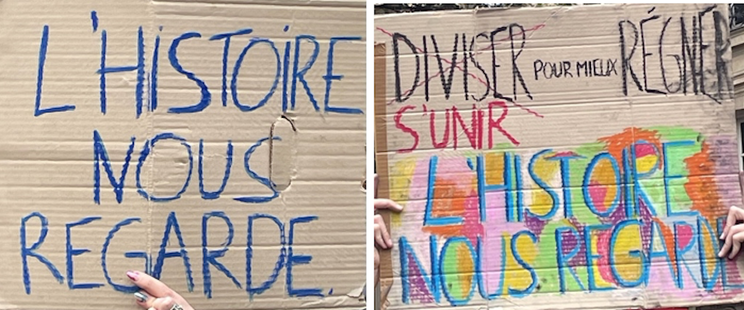 L'HISTOIRE
NOUS
REGARDE.
DIVISER POUR MIEUX RÉGNER
S'UNIR
L'HISTOIRE
NOUS REGARDE